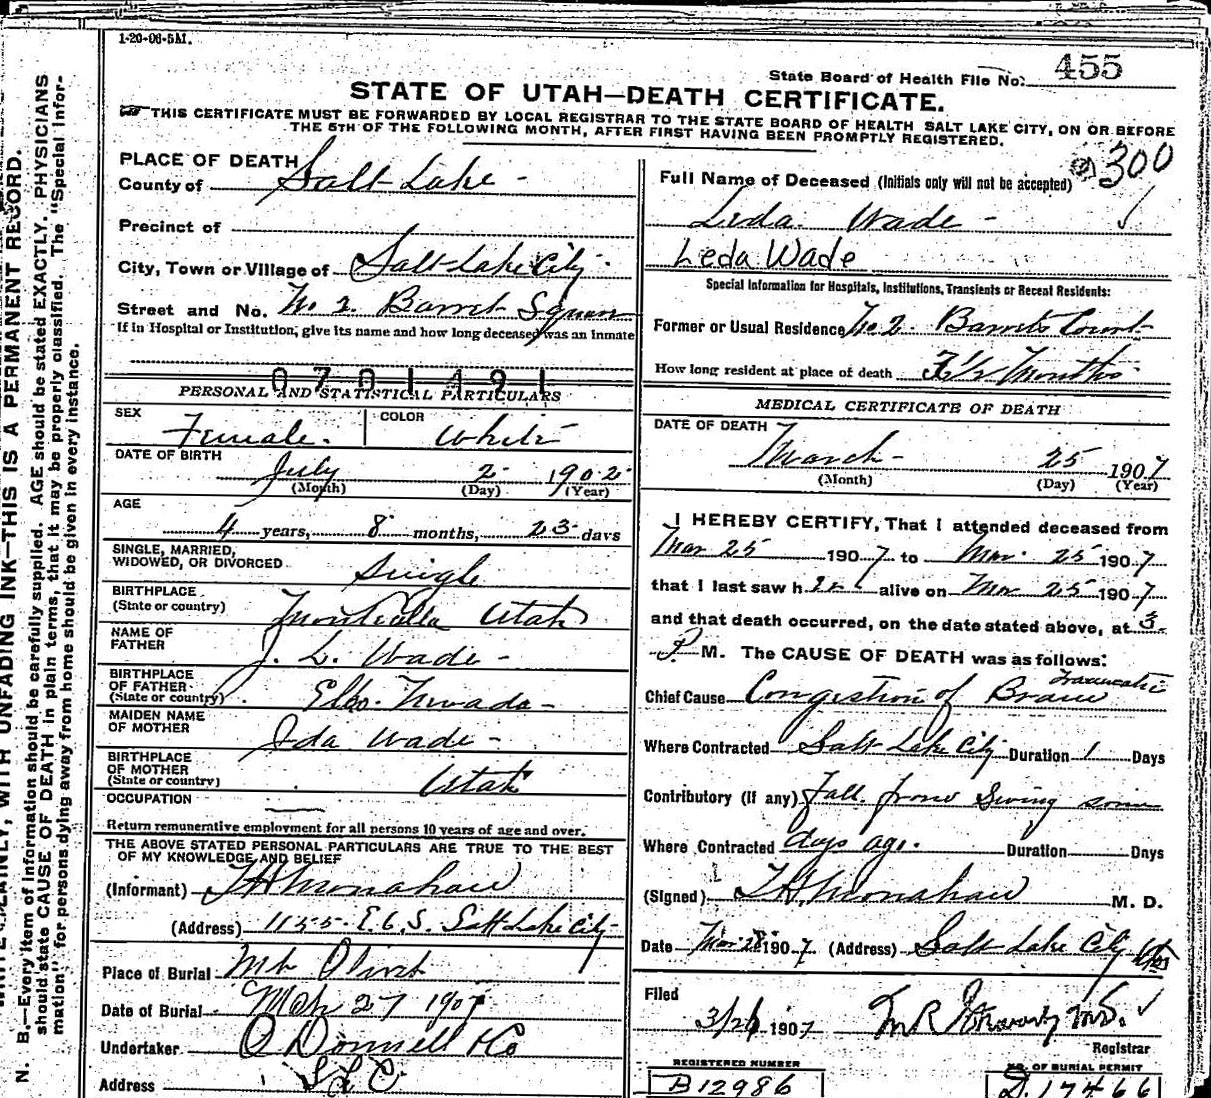 1-20-06-5M.
State Board of Health File No. 455
STATE OF UTAH—DEATH CERTIFICATE.
THIS CERTIFICATE MUST BE FORWARDED BY LOCAL REGISTRAR TO THE STATE BOARD OF HEALTH SALT LAKE CITY, ON OR BEFORE
THE 5TH OF THE FOLLOWING MONTH, AFTER FIRST HAVING BEEN PROMPTLY REGISTERED.
N. B.—Every item of information should be carefully supplied. AGE should be stated EXACTLY. PHYSICIANS
should state CAUSE OF DEATH in plain terms, that it may be properly classified. The "Special Infor-
mation" for persons dying away from home should be given in every instance.
PLAINLY, WITH UNFADING INK—THIS IS A PERMANENT RECORD.
PLACE OF DEATH
County of Salt Lake
Precinct of
City, Town or Village of Salt Lake City
Street and No. No 2. Barret Square
If in Hospital or Institution, give its name and how long deceased was an Inmate
0701491
PERSONAL AND STATISTICAL PARTICULARS
SEX Female. COLOR White
DATE OF BIRTH
July 2 1902
(Month) (Day) (Year)
AGE
4 years, 8 months, 23 days
SINGLE, MARRIED,
WIDOWED, OR DIVORCED Single
BIRTHPLACE
(State or country) Utah
NAME OF
FATHER J. L. Wade
BIRTHPLACE
OF FATHER
(State or country) Elko. Nevada
MAIDEN NAME
OF MOTHER Ida Wade
BIRTHPLACE
OF MOTHER
(State or country) Utah
OCCUPATION
Return remunerative employment for all persons 10 years of age and over.
THE ABOVE STATED PERSONAL PARTICULARS ARE TRUE TO THE BEST
OF MY KNOWLEDGE AND BELIEF
(Informant) T H Monahan
(Address) 1155 E. 6. S. Salt Lake City
Place of Burial Mt Olivet
Date of Burial Mch 27 1907
Undertaker O Donnell & Co
Address S L C
300
Full Name of Deceased (Initials only will not be accepted)
Leda Wade
Leda Wade
Special Information for Hospitals, Institutions, Transients or Recent Residents:
Former or Usual Residence No 2. Barrets Court
How long resident at place of death Months
MEDICAL CERTIFICATE OF DEATH
DATE OF DEATH
March 25 1907
(Month) (Day) (Year)
I HEREBY CERTIFY, That I attended deceased from
Mar 25 1907 to Mar. 25 1907
that I last saw her alive on Mar 25 1907
and that death occurred, on the date stated above, at 3
P M. The CAUSE OF DEATH was as follows:
Chief Cause Congestion of Brain Traumatic
Where Contracted Salt Lake City Duration 1 Days
Contributory (if any) Fall from Swing some
Where Contracted days ago. Duration Days
(Signed) T. H. Monahan M. D.
Date Mar 1907 (Address) Salt Lake City
Filed
3/26 1907 M R
Registrar
REGISTERED NUMBER
B12986
NO. OF BURIAL PERMIT
D.17466